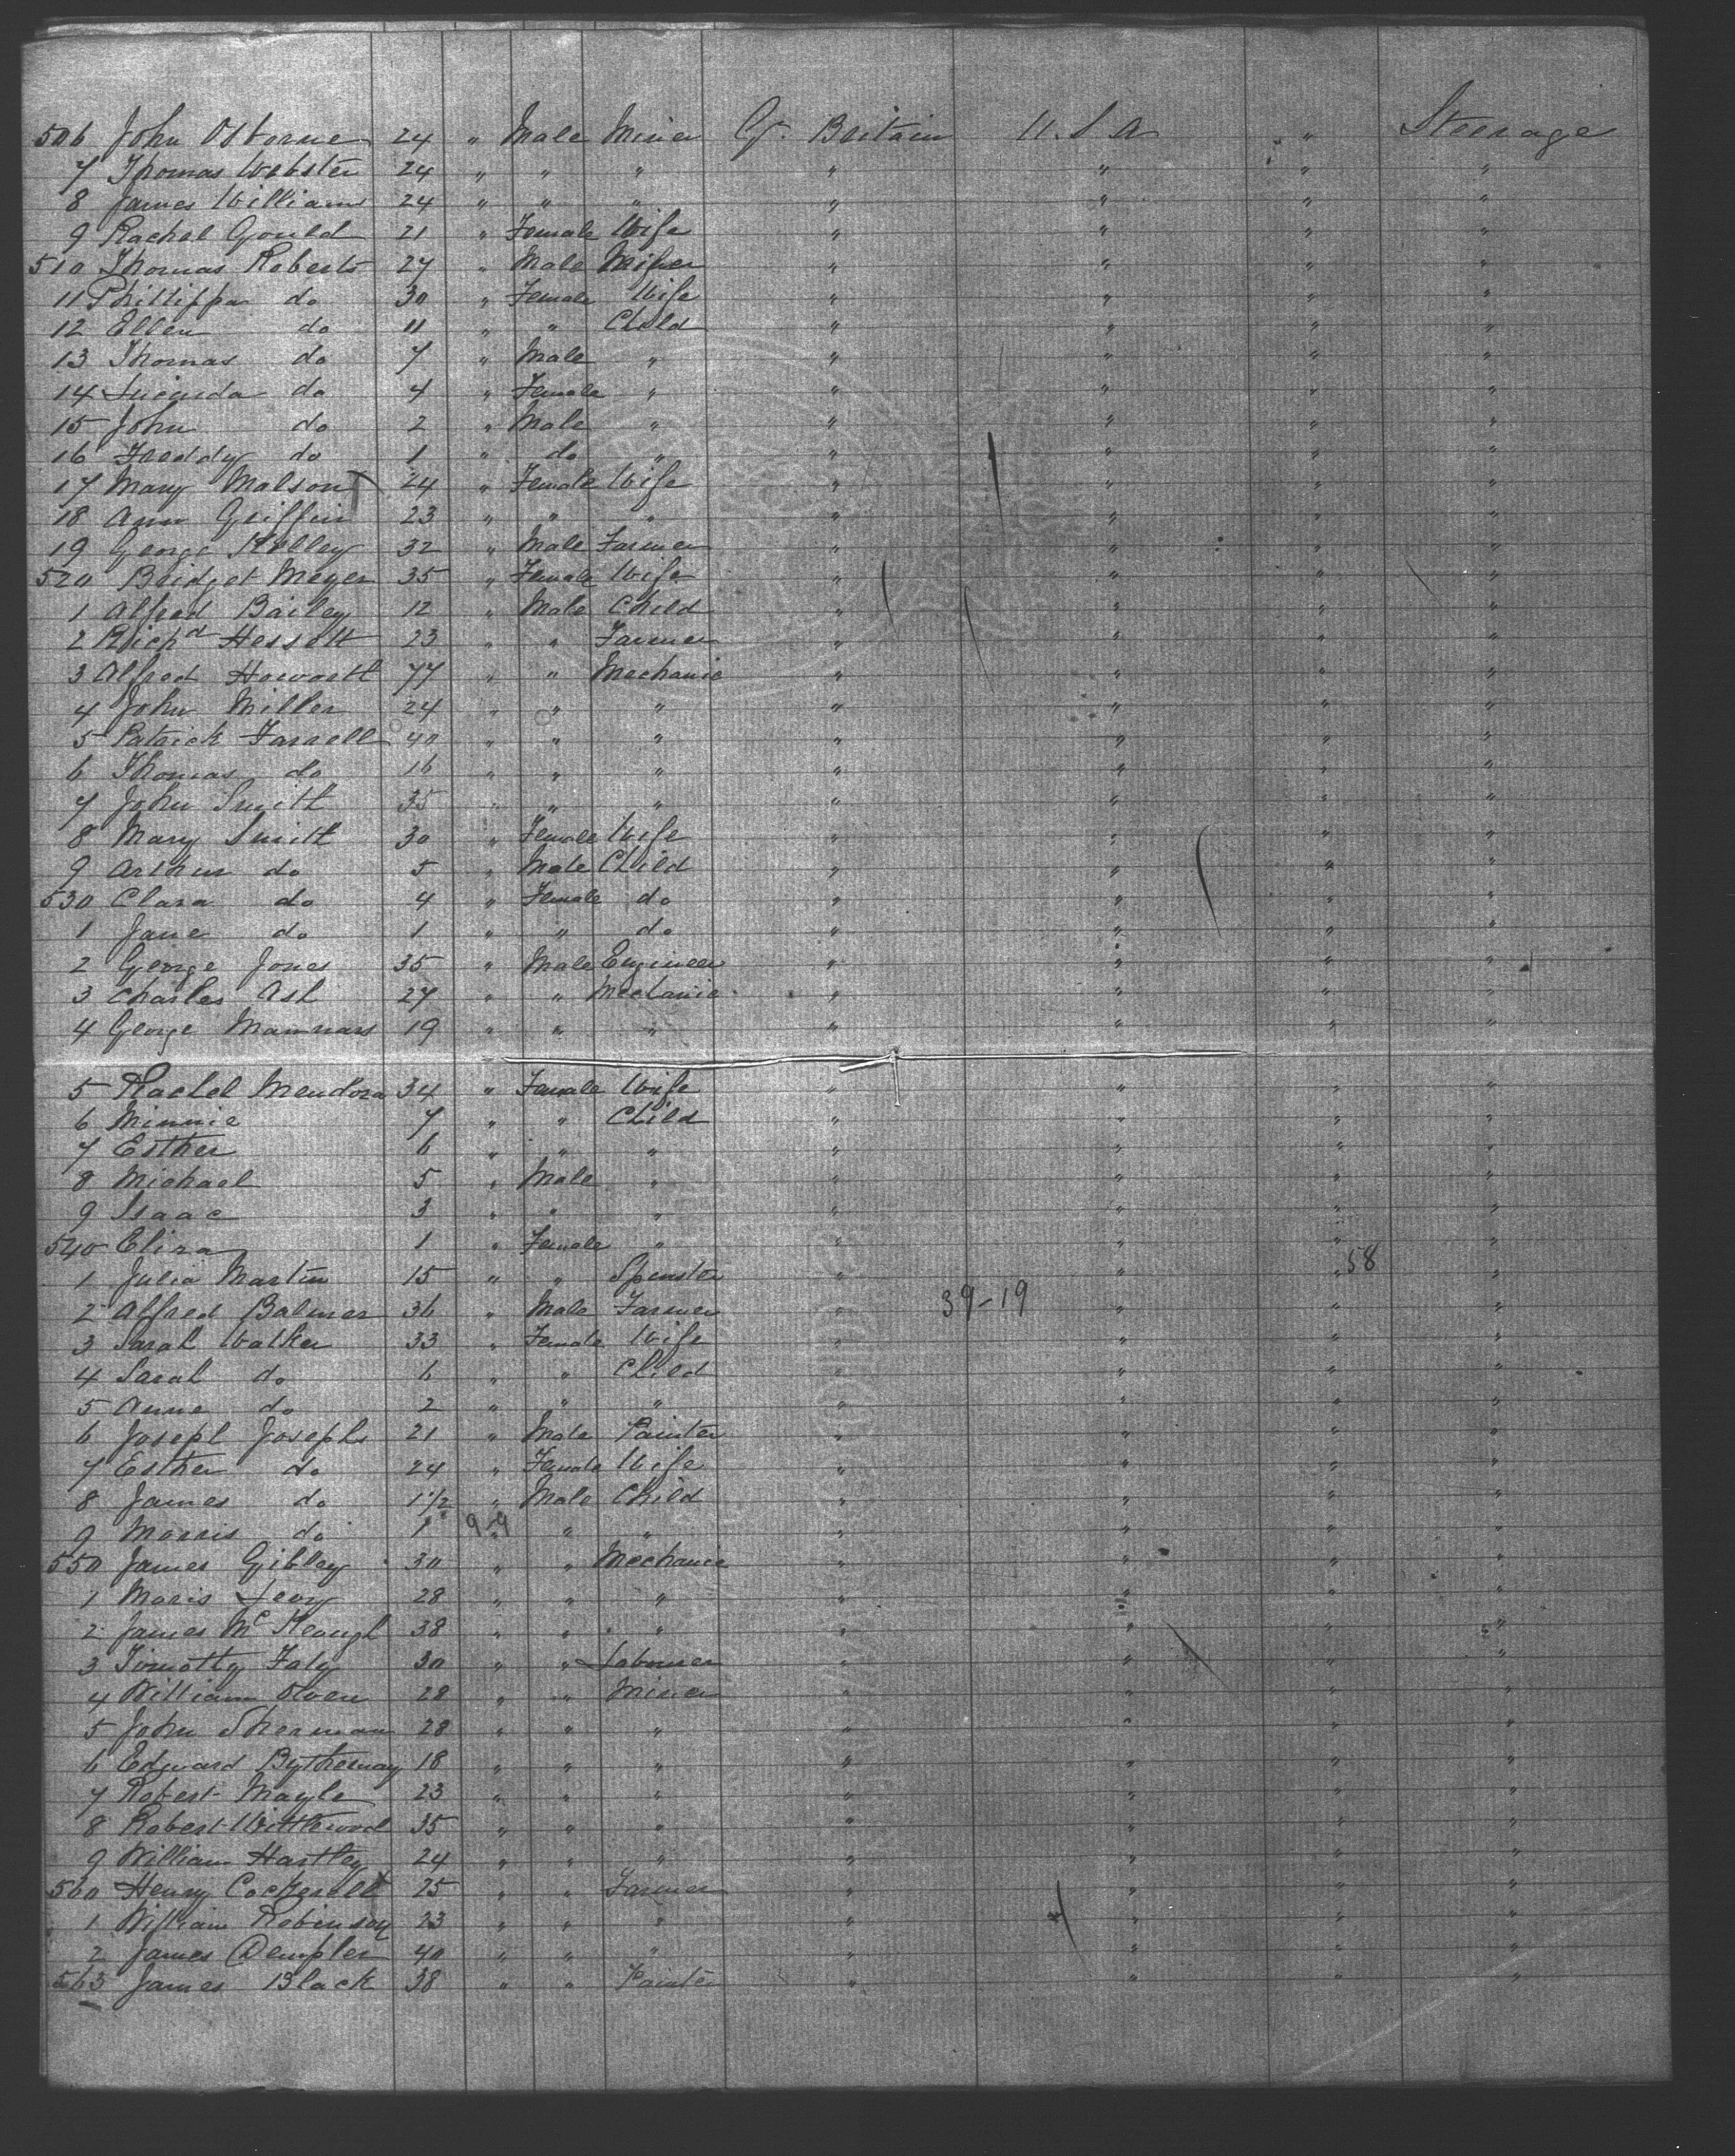 506 John Osborne 24 " Male Miner Gt. Britain U.S.A " Steerage
7 Thomas Webster 24 " " " " " " "
8 James Williams 24 " " " " " " "
9 Rachel Gould 21 " Female Wife " " " "
510 Thomas Roberts 27 " Male Miner " " " "
11 Phillippa do 30 " Female Wife " " " "
12 Ellen do 11 " " Child " " " "
13 Thomas do 7 " Male " " " " "
14 Lucinda do 4 " Female " " " " "
15 John do 2 " Male " " " " "
16 Freddy do 1 " do " " " " "
17 Mary Malson 24 " Female Wife " " " "
18 Ann Griffin 23 " " " " " " "
19 George Kelley 32 " Male Farmer " " " "
520 Bridget Meyer 35 " Female Wife " " " "
1 Alfred Bailey 12 " Male Child " " " "
2 Richd Hessett 23 " " Farmer " " " "
3 Alfred Howarth 77 " " Mechanic " " " "
4 John Miller 24 " " " " " " "
5 Patrick Farrell 40 " " " " " " "
6 Thomas do 16 " " " " " " "
7 John Smith 35 " " " " " " "
8 Mary Smith 30 " Female Wife " " " "
9 Arthur do 5 " Male Child " " " "
530 Clara do 4 " Female do " " " "
1 Jane do 1 " " do " " " "
2 George Jones 35 " Male Engineer " " " "
3 Charles Ash 27 " " Mechanic " " " "
4 George 19 " " " " " " "
5 Rachel Mendoza 34 " Female Wife " " " "
6 Minnie 7 " " Child " " " "
7 Esther 6 " " " " " " "
8 Michael 5 " Male " " " " "
9 Isaac 3 " " " " " " "
540 Eliza 1 " Female " " " " "
1 Julia Martin 15 " " Spinster " " " 58 "
2 Alfred Balmer 36 " Male Farmer " 39-19 " " "
3 Sarah Walker 33 " Female Wife " " " "
4 Sarah do 6 " " Child " " " "
5 Anne do 2 " " " " " " "
6 Joseph Josephs 21 " Male Painter " " " "
7 Esther do 24 " Female Wife " " " "
8 James do 1 1/2 " Male Child " " " "
9 Morris do 1 9-9 " " " " " " "
550 James Gibley 30 " " Mechanic " " " "
1 Moris Levy 28 " " " " " " "
2 James McKeough 38 " " " " " " "
3 Timothy Faly 30 " " Labourer " " " "
4 William Owen 28 " " Miner " " " "
5 John Sherman 28 " " " " " " "
6 Edward Bytheway 18 " " " " " " "
7 Robert Mayle 23 " " " " " " "
8 Robert 35 " " " " " " "
9 William Hartley 24 " " " " " " "
560 Henry Cockerell 25 " " Farmer " " " "
1 William Robinson 23 " " " " " " "
2 James Dempler 40 " " " " " " "
563 James Black 38 " " Painter " " " "